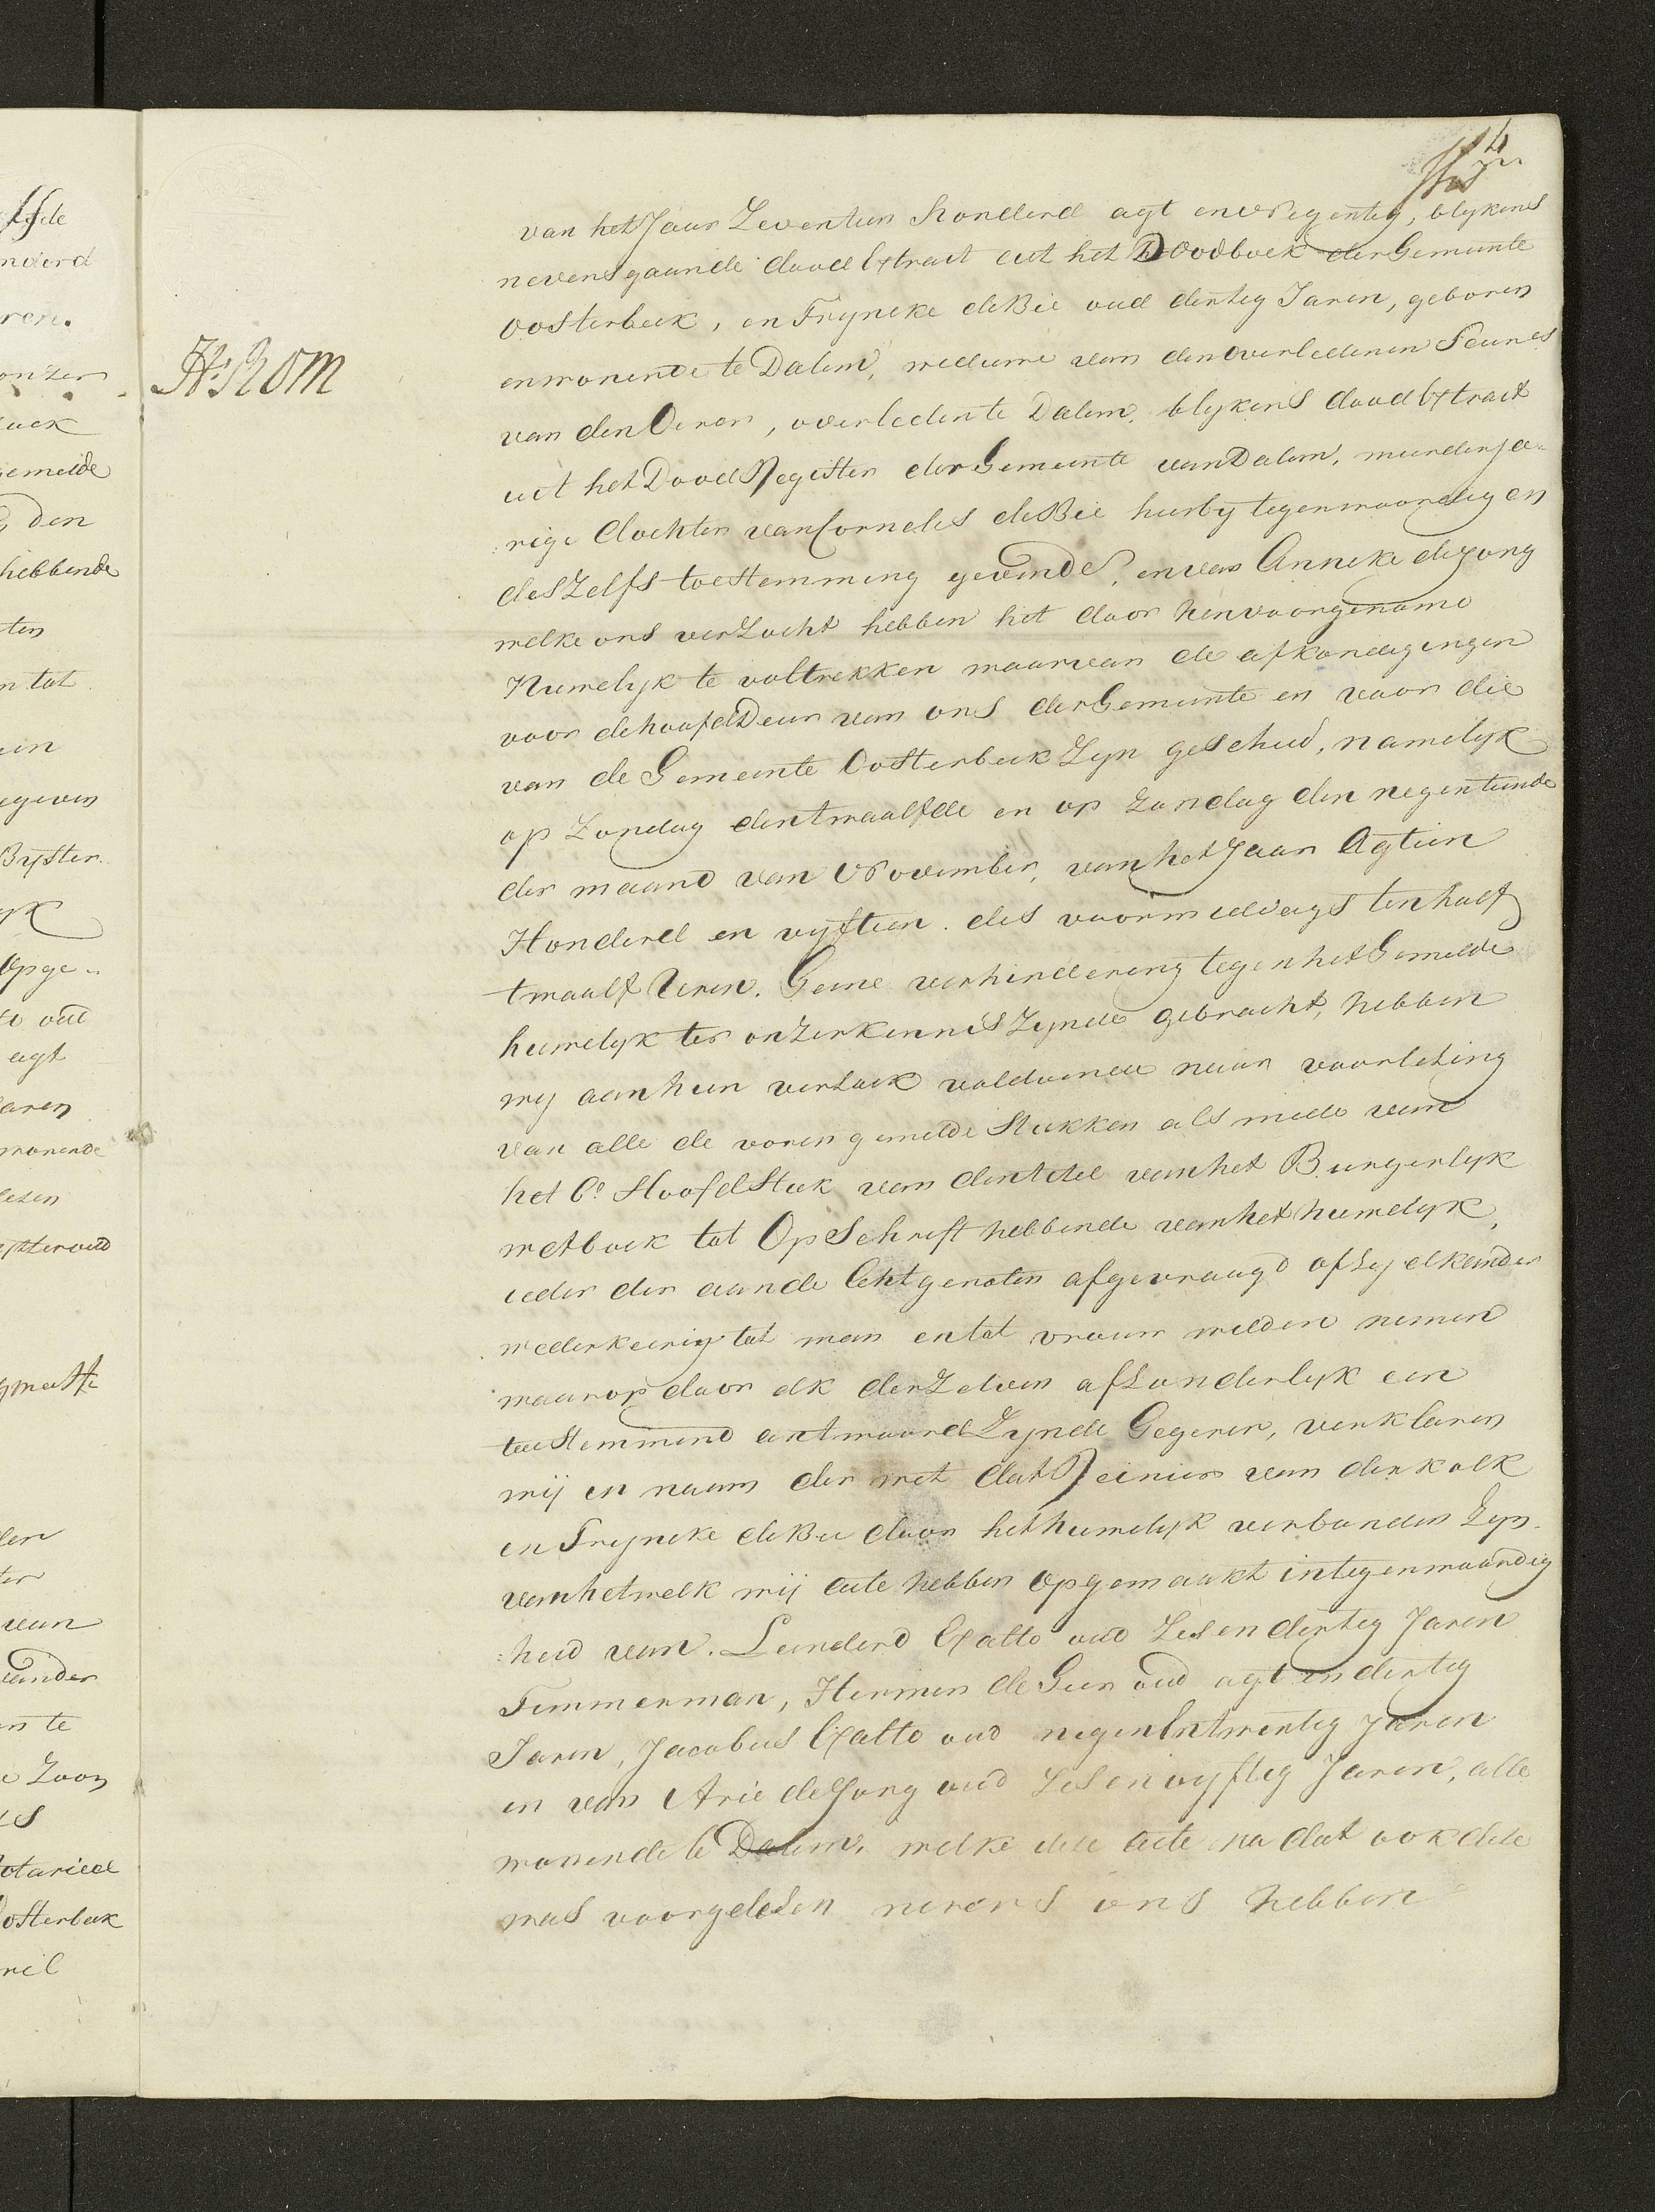 4
van het Jaar Zeventien honderd agt en Negentig, blykens
nevensgaande dood Extract uit het Doodboek der Gemeente
Oosterbeek, en Tryneke de Bie oud dertig Jaren, geboren
en wonende te Dalem, weduwe van den overledenen Teunes
van den Oever, overleden te Dalem, blykens dood Extract
uit het Dood Register der Gemeente van Dalem, meerderja-
:rige dochter van Cornelis de Bie hierby tegenwoordig en
deszelfs toestemming gevende, en van Anneke de Jong
welke ons verzocht hebben het door hen voorgenome
Huwelyk te voltrekken waarvan de afkondigingen
voor de hoofd Deur van ons der Gemeente en voor die
van de Gemeente Oosterbeek Zyn geschied, namelyk
op Zondag den twaalfde en op Zondag den negentiende
der maand van November, van het Jaar Agtien
Honderd en vyftien. des voormiddags ten half
twaalf Uren. Geene verhindering tegen het Gemelde
huwelyk ter onzer kennis Zynde gebracht, hebben
wy aan hun verzoek voldoende naar voorlezing
van alle de voren gemelde Stukken als mede van
het 6e Hoofdstuk van den titel van het Burgerlyk
wetboek tot Opschrift hebbende van het huwelyk,
ieder der aande Echtgenoten afgevraagd of zy elkander
wederkeerig tot man en tot vrouw wilden nemen
waarop door elk derzelven afzonderlyk een
toestemmend antwoord Zynde Gegeven, verklaren
wij in naam der wet dat Reinier van der kolk
en Tryneke de Bie door het huwelyk verbonden Zyn.
van het welk wij acte hebben opgemaakt in tegenwoordig
:heid van. Leenderd Exalto oud Zes en dertig Jaren
Timmerman, Hermen de Geer oud agt en dertig
Jaren, Jacobus Exalto oud negen En twentig Jaren
en van Arie de Jong oud Zes en vyftig Jaren, alle
wonende te Dalem, welke deze acte na dat ook deze
was voorgelezen nevens ons hebben
H: Kom